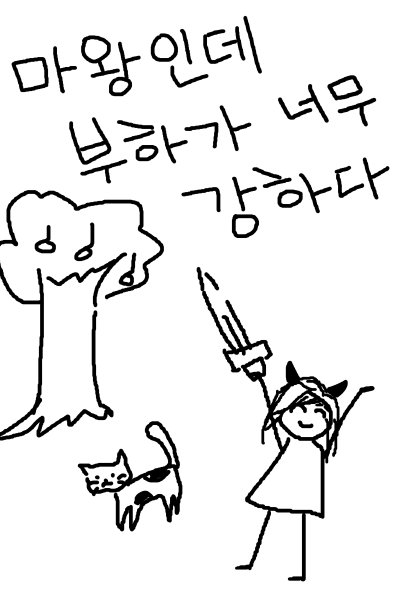 마왕인데
부하가 너무
감하다